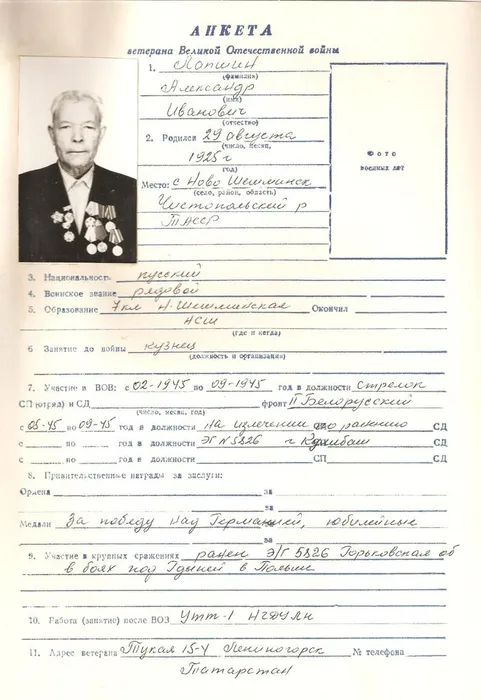 АНКЕТА
ветерана Великой Отечественной войны
1. Лопшин
(фамилия)
Александр
(имя)
Иванович
(отчество)
2. Родился 29 августа
(число, месяц,
1925 г
год)
Место: с Ново Шешминск
(село, район, область)
Чистопольский р
ТАССР
Фото
военных лет
3. Национальность русский
4. Воинское звание рядовой
5. Образование 7 кл Н-Шешминская Окончил
НСШ
(где и когда)
6 Занятие до войны кузнец
(должность и организация)
7. Участие в ВОВ: с 02-1945 по 09-1945 год в должности стрелок
СП (отряд) и СД фронт II Белорусский
(число, месяц, год)
с 05-45 по 09-45 год в должности На излечении по ранению СД
с по год в должности ЭГ N 5826 г СД
с по год в должности СП СД
8. Правительственные награды за заслуги:
Ордена за
за
Медали За победу над Германией, юбилейные
за
9. Участие в крупных сражениях ранен Э/Г 5826 Горьковская об
в боях под Гдыней в Польше
10. Работа (занятие) после ВОЗ УТТ-1
11. Адрес ветерана Тукая 15-4 Лениногорск № телефона
Татарстан